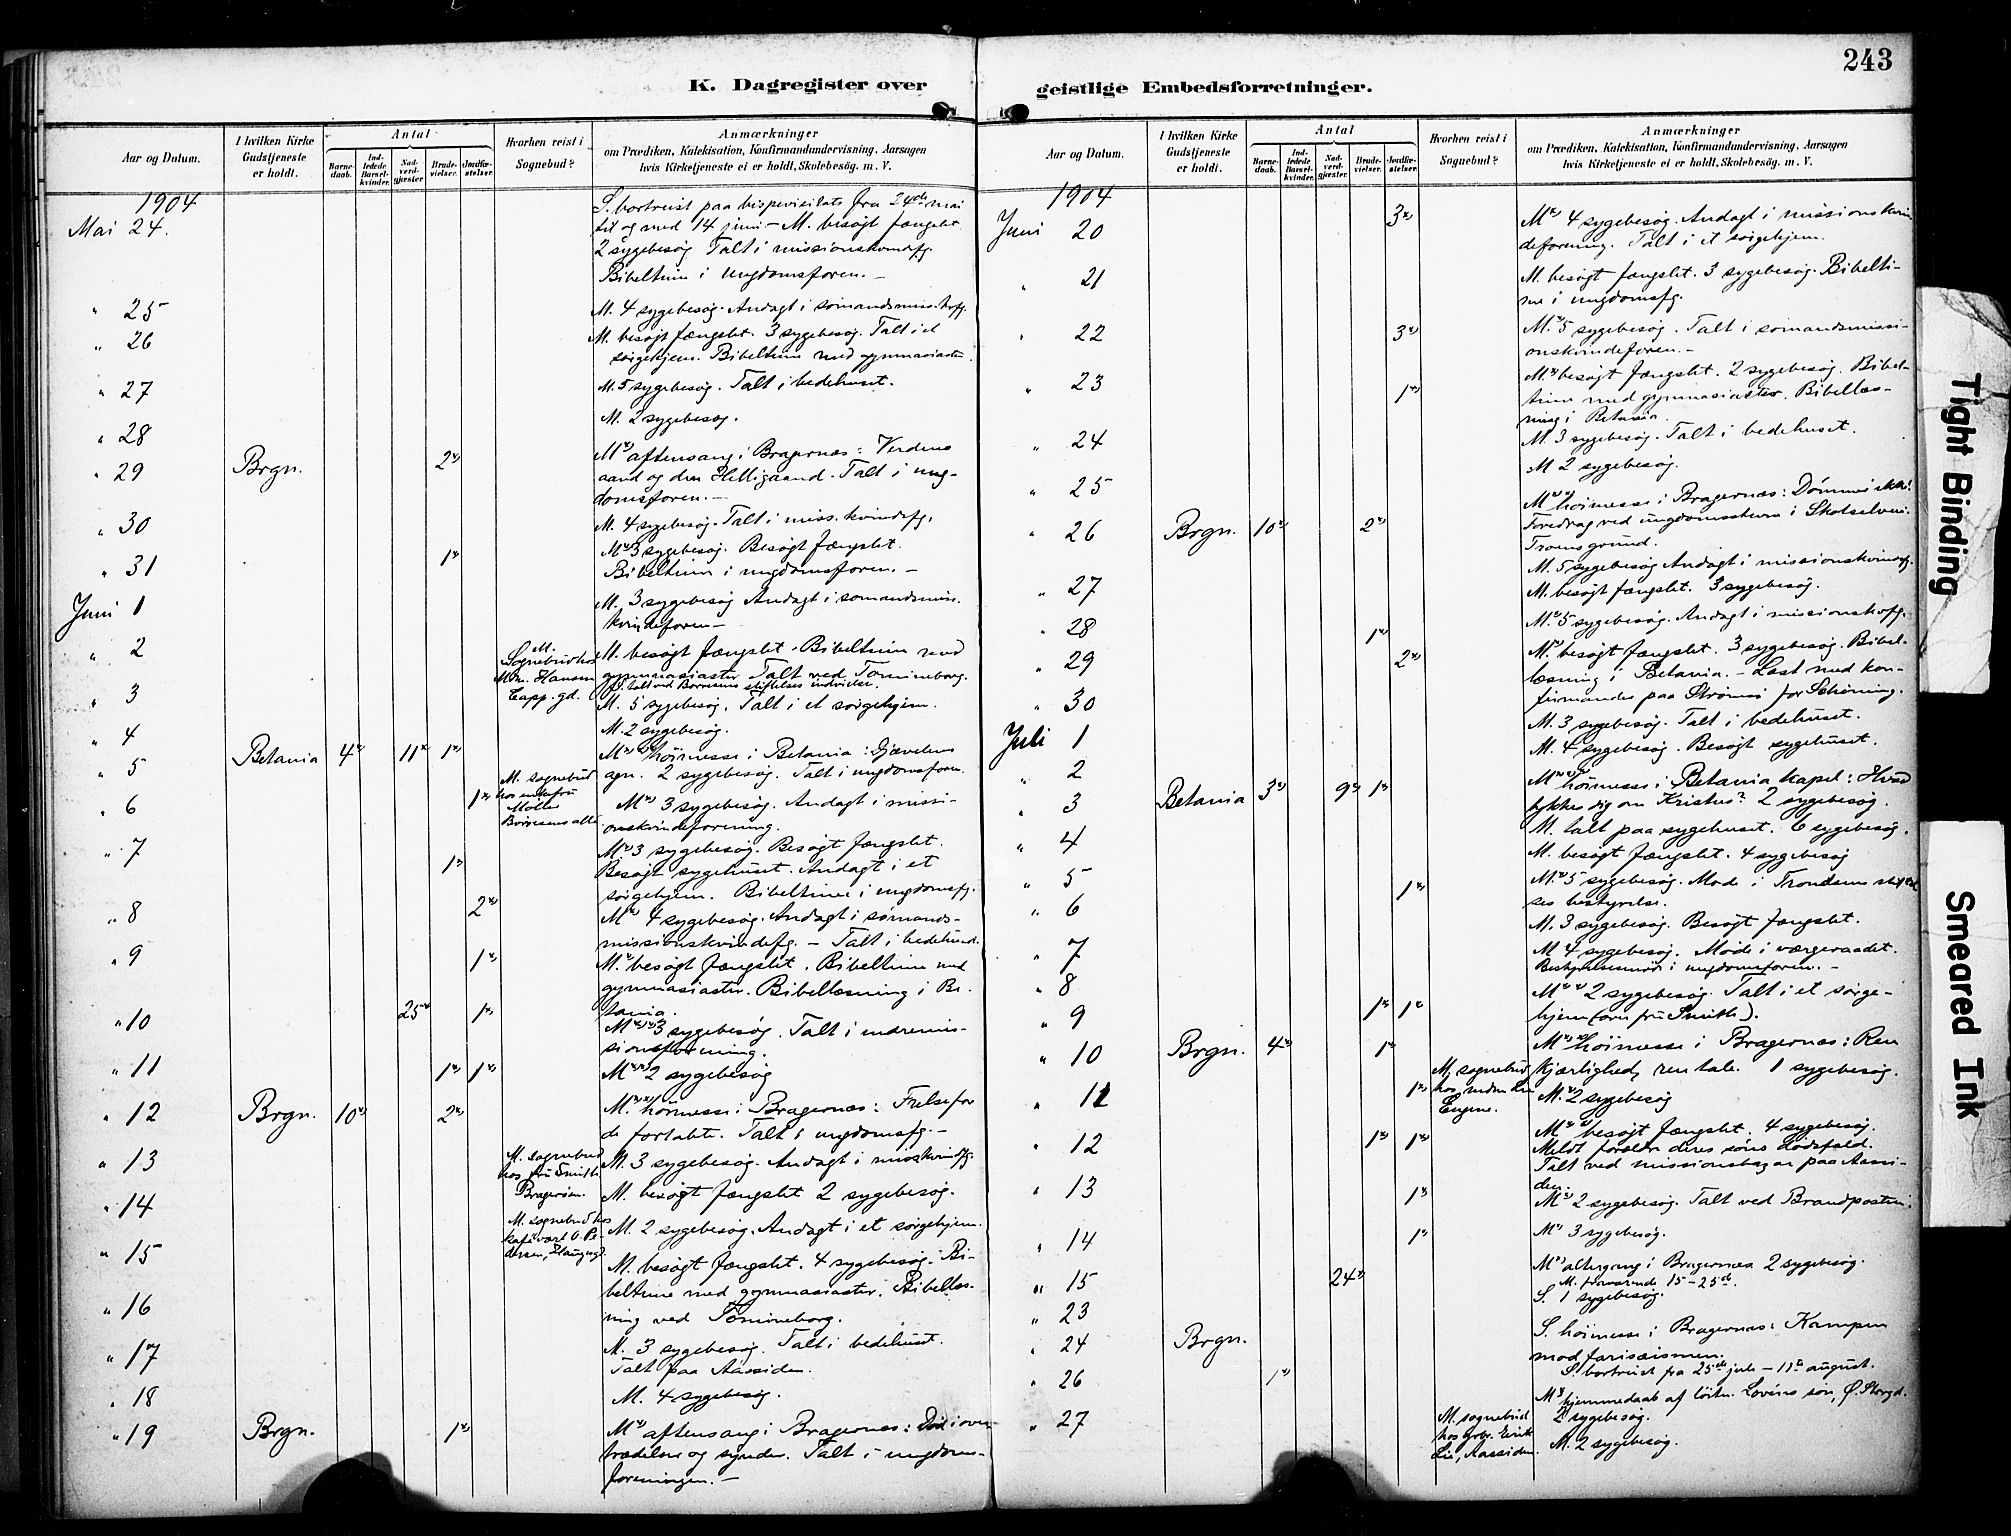 243
K. Dagregister over
geistlige Embedsforretninger.
Aar og Datum.
I hvilken Kirke Gudstjeneste er holdt.
Antal
Barnedaab.
Indledede Barselkvinder.
Nadverdgjæster.
Brudevielser.
Jordfæstelser.
Hvorhen reist i Sognebud?
Anmærkninger
om Prædiken, Katekisation, Konfirmandundervisning, Aarsagen
hvis Kirketjeneste ei er holdt, Skolebesög. m. V.
1904
Mai 24.
S. bortreist paa bispevisitats fra 24de mai
til og med 14 juni - M. besøgt fængslet.
2 sygebesøg Talt i missionskvindefg.
Bibeltime i Ungdomsforen. -
" 25 M. 4 sygebesøg. Andagt i sømandsmiss.kvfg.
" 26 M. besøgt fængslet. 3 sygebesøg. Talt i et
sørgehjem. Bibeltime med gymnasiaster.
" 27 M. 5 sygebesøg. Talt i bedehuset.
" 28 M. 2 sygebesøg.
" 29 Brgn. 2 M aftensang i Bragernæs: Verdens
aand og den Helligaand. Talt i ung-
domsforen. -
" 30 M. 4 sygebesøg. Talt i miss. kvindefg.
" 31 1 M 3 sygebesøg. Besøgt fængslet.
Bibeltime i ungdomsforen. -
Juni 1 M. 3 sygebesøg Andagt i sømandsmiss.
kvindeforen -
" 2 M. Sognebud hos
Hansen
Capp. gd.
M. besøgt fængslet. Bibeltime med
gymnasiaster Talt ved Tømmeborg.
" 3 M. 5 sygebesøg. Talt i et sørgehjem.
" 4 M. 2 sygebesøg.
" 5 Betania 4 11 1 M høimesse i Betania: Djævelens
agn. 2 sygebesøg. Talt i ungdomsforen.
" 6 1 M. sognebud
hos enkefru
Møller
M 3 sygebesøg. Andagt i missi-
onskvindeforening.
" 7 1 M 3 sygebesøg. Besøgt fængslet.
Besøgt sygehuset. Andagt i et
sørgehjem. Bibeltime i ungdomsfg.
" 8 2 M 4 sygebesøg. Andagt i sømands-
missionskvindefg. - Talt i bedehuset.
" 9 1 M. besøgt fængslet. Bibeltime med
gymnasiaster. Bibellæsning i Be-
tania.
" 10 25 1 M 3 sygebesøg. Talt i indremis-
sionsforening.
" 11 1 1 M 2 sygebesøg
" 12 Brgn. 10 2 M. høimesse i Bragernæs: Frelse for
de fortabte. Talt i ungdomsfg. -
" 13 M. sognebud
hos fru Smith
Bragerøen.
M. 3 sygebesøg. Andagt i misskvindfg.
" 14 M. besøgt fængslet 2 sygebesøg.
" 15 M. sognebud hos
kafévært O. Pe-
dersen, Haugesgd.
M. 2 sygebesøg. Andagt i et sørgehjem.
" 16 M. besøgt fængslet. 4 sygebesøg. Bi-
beltime med gymnasiaster. Bibellæs-
ning ved Tømmeborg.
" 17 M. 3 sygebesøg. Talt i bedehuset.
Talt paa Aassiden.
" 18 M. 4 sygebesøg.
" 19 Brgn. 1 M aftensang i Bragernæs: Død i over-
trædelser og synder. Talt i ungdoms-
foreningen. -
Aar og Datum.
I hvilken Kirke Gudstjeneste er holdt.
Antal
Barnedaab.
Indledede Barselkvinder.
Nadverdgjæster.
Brudevielser.
Jordfæstelser.
Hvorhen reist i Sognebud?
Anmærkninger
om Prædiken, Katekisation, Konfirmandundervisning, Aarsagen
hvis Kirketjeneste ei er holdt, Skolebesög. m. V.
1904
Juni 20 3 M 4 sygebesøg. Andagt i missionskvin-
deforening. Talt i et sørgehjem.
" 21 M. besøgt fængslet. 3 sygebesøg. Bibelti-
me i ungdomsfg.
" 22 3 M. 5 sygebesøg. Talt i sømandsmissi-
onskvindeforen. -
" 23 1 M. besøgt fængslet. 2 sygebesøg. Bibel-
time med gymnasiaster. Bibellæs-
ning i Betania.
" 24 M. 3 sygebesøg. Talt i bedehuset.
" 25 M 2 sygebesøg.
" 26 Brgn. 10 2 M høimesse i Bragernæs: Dømmer ikke!
Foredrag ved ungdomsstevne i Skotselven:
Troens grund.
" 27 M. 5 sygebesøg Andagt i missionskvindefg.
" 28 1 M. besøgt fængslet. 3 sygebesøg.
" 29 2 M. 5 sygebesøg. Andagt i missionskvfg.
" 30 M. besøgt fængslet. 3 sygebesøg. Bibel-
læsning i Betania. - Læst med kon-
firmander paa Strømsø for Schøning.
Juli 1 M. 3 sygebesøg. Talt i bedehuset.
" 2 M. 4 sygebesøg. Besøgt sygehuset.
" 3 Betania 3 9 1 M høimesse i Betania kapel: Hvad
tykkes dig om Kristus? 2 sygebesøg.
" 4 M. talt paa sygehuset. 6 sygebesøg.
" 5 1 M. besøgt fængslet. 4 sygebesøg
" 6 M. 5 sygebesøg. Møde i Trondsens stiftel-
ses bestyrelse.
" 7 M. 3 sygebesøg. Besøgt fængslet.
" 8 M 4 sygebesøg. Møde i værgeraadet.
Bestyrelsesmøde i ungdomsforen. -
" 9 1 1 M 2 sygebesøg. Talt i et sørge-
hjem (over fru Smith).
" 10 Brgn. 4 1 M høimesse i Bragernæs: Ren
kjærlighed, ren tale. 1 sygebesøg.
" 11 1 M. sognebud
hos
Engene.
M. 2 sygebesøg
" 12 1 1 M besøgt fængslet. 4 sygebesøg.
Meldt forældre deres søns dødsfald.
Talt ved missionsbazar paa Aassi-
den.
" 13 1 M 2 sygebesøg. Talt ved Brandposten.
" 14 1 M 3 sygebesøg.
" 15 24 M altergang i Bragernæs 2 sygebesøg.
M. fraværende 15-25de.
" 23 S. 1 sygebesøg.
" 24 Brgn. S. høimesse i Bragernæs: Kampen
mod farisæismen.
S. bortreist fra 25de juli - 11te august.
" 26 1 M hjemmedaab af løitn. Lovéns søn, Ø. Storgd.
2 sygebesøg.
" 27 M. sognebud
hos Erik
Lie, Aassiden.
M. 2 sygebesøg.
Tight Binding
Smeared Ink